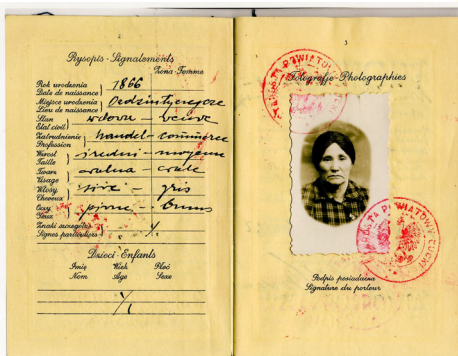 Rysopis - Signalements
Żona - Femme
Rok urodzenia
Date de naissance
1866
Miejsce urodzenia
Lieu de naissance
Stan
Etat civil
wdowa – veuve
Zatrudnienie
Profession
handel – commerce
Wzrost
Taille
średni – moyenne
Twarz
Visage
owalna – ovale
Włosy
Cheveux
siwe – gris
Oczy
Yeux
piwne – bruns
Znaki szczególne
Signes particuliers
·/.
Dzieci - Enfants
Imię Wiek Płeć
Nom Age Sexe
·/.
3
Fotografje - Photographies
STAROSTA POWIATOWY
STAROSTA POWIATOWY ŁUCKI
Podpis posiadacza
Signature du porteur